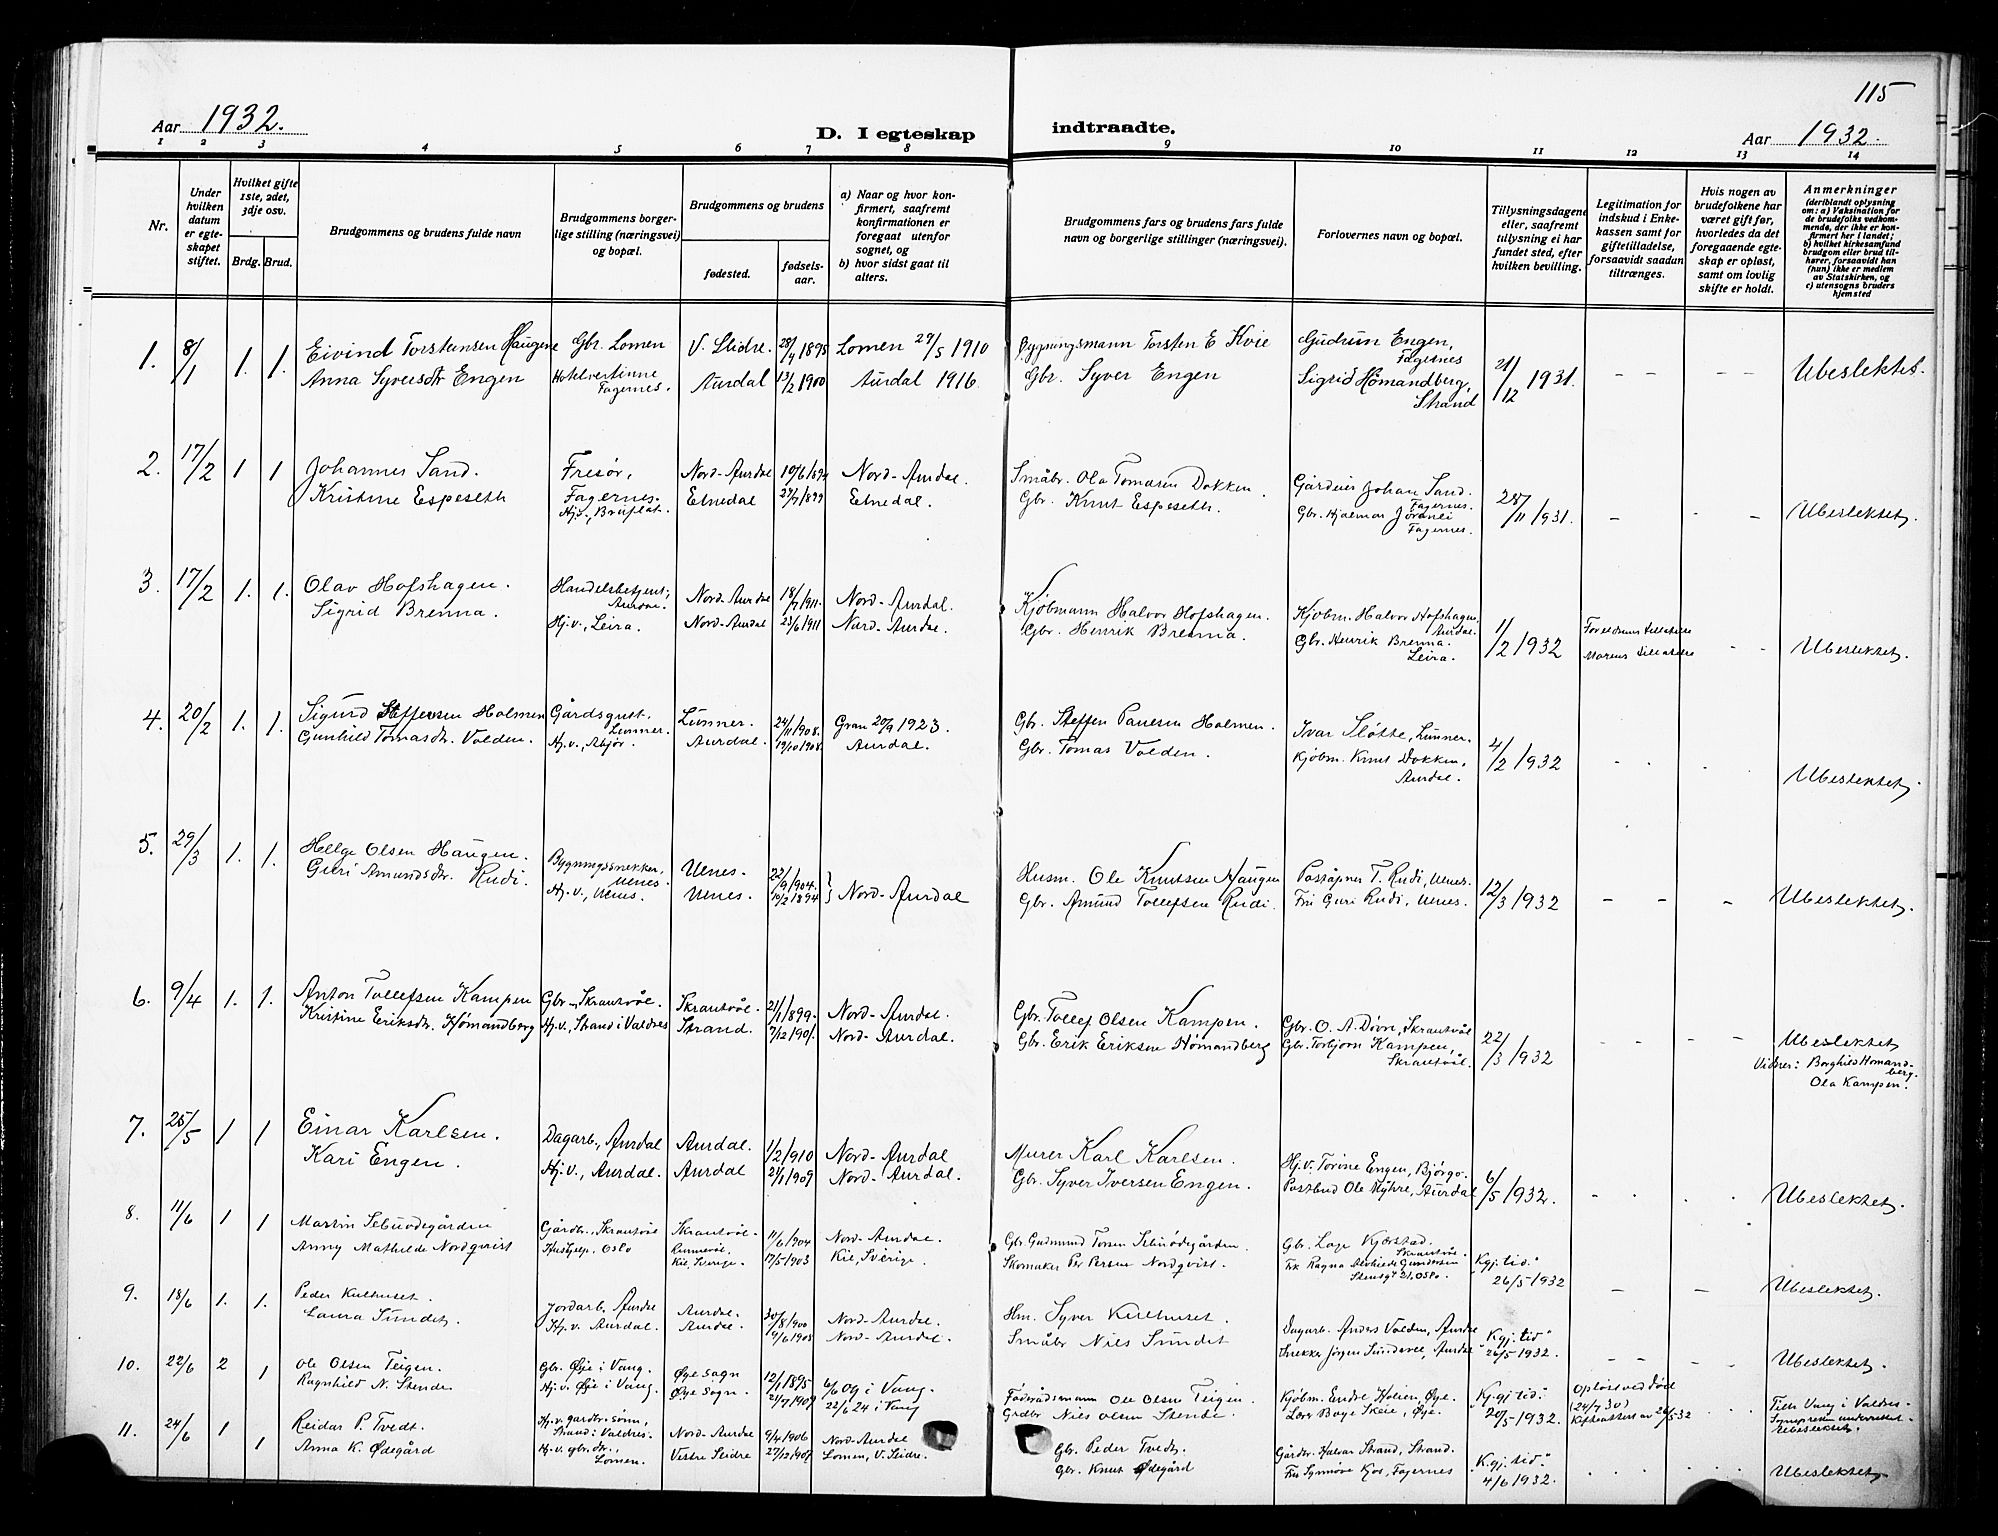 115
Aar 1932.
D. I egteskap
indtraadte.
Aar 1932.
1 2 3 4 5 6 7 8 9 10 11 12 13 14
Nr.
Under hvilken datum er egteskapet stiftet.
Hvilket gifte 1ste, 2det, 3dje osv.
Brdg. Brud.
Brudgommens og brudens fulde navn
Brudgommens borgerlige stilling (næringsvei) og bopæl.
Brudgommens og brudens
fødested.
fødselsaar.
a) Naar og hvor konfirmert, saafremt konfirmationen er foregaat utenfor sognet, og
b) hvor sidst gaat til alters.
Brudgommens fars og brudens fars fulde navn og borgerlige stillinger (næringsvei).
Forlovernes navn og bopæl.
Tillysningsdagene eller, saafremt tillysning ei har fundet sted, efter hvilken bevilling.
Legitimation for indskud i Enkekassen samt for giftetilladelse, forsaavidt saadan tiltrænges.
Hvis nogen av brudefolkene har været gift før, hvorledes da det foregaaende egteskap er opløst, samt om lovlig skifte er holdt.
Anmerkninger
(deriblandt oplysning om: a) Vaksination for de brudefolks vedkommende, der ikke er konfirmert her i landet;
b) hvilket kirkesamfund brudgom eller brud tilhører, forsaavidt han (hun) ikke er medlem av Statskirken, og
c) utensogns bruders hjemsted
1. 8/1 1. 1. Eivind Torstensen Haugene Gbr. Lomen V. Slidre. 28/4 1895 Lomen 29/5 1910 Bygningsmann Torsten E Kvie Gudrun Engen, Fagernes 21/12 1931. – – – – Ubeslektet.
Anna Syversdtr Engen Hotelvertinne Fagernes. Aurdal 13/2 1900 Aurdal 1916. Gbr. Syver Engen Sigrid Hømandberg, Strand
2. 17/2 1 1 Johannes Sand. Frisør, Fagernes. Nord-Aurdal 19/6 1894 Nord-Aurdal. Småbr. Ola Tomasen Dokken. Gårdeier Johan Sand. Fagernes. 28/11 1931. – – Ubeslektet.
Kristine Espeseth Hj.v., Bruflat. Etnedal 27/7 1899 Etnedal. Gbr. Knut Espeseth. Gbr. Hjalmar Jøranli Fagernes.
3. 17/2 1. 1. Olav Hofshagen. Handelsbetjent, Aurdal Nord-Aurdal 18/7 1911. Nord-Aurdal. Kjøbmann Halvor Hofshagen. Kjøbm. Halvor Hofshagen, Aurdal. 1/2 1932 – – Ubeslektet.
Sigrid Brenna. Hj.v., Leira. Nord-Aurdal 23/6 1911 Nord-Aurdal. Gbr. Henrik Brenna. Gbr. Henrik Brenna. Leira.
4. 20/2 1. 1. Sigurd Steffensen Holmen Gårdsgutt, Lunner. Lunner. 24/11 1908. Gran 20/9 1923. Gbr. Steffen Paulsen Holmen. Ivar Slotte, Lunner. 4/2 1932 Ubeslektet.
Gunhild Tomasdr. Volden. Hj.v., Åbjør. Aurdal. 19/10 1908. Aurdal. Gbr. Tomas Volden. Kjøbm. Knut Dokken, Aurdal.
5. 29/3 1. 1. Helge Olsen Haugen. Bygningssnekker, Ulnes. Ulnes. 22/9 1904. Nord-Aurdal Husm. Ole Knutsen Haugen Poståpner T. Rudi, Ulnes. 12/3 1932 – – – Ubeslektet.
Guri Amundsdr. Rudi. Hj.v., Ulnes. Ulnes. 10/2 1894 Gbr. Amund Tollefsen Rudi. Fru Guri Rudi, Ulnes.
6. 9/4 1. 1. Anton Tollefsen Kampen Gbr., Skrautvål. Skrautvål. 21/1 1899. Nord-Aurdal. Gbr. Tollef Olsen Kampen. Gbr. O. A. Døvre, Skrautvål 22/3 1932 – – – Ubeslektet
Kristine Eriksdr. Hømandberg Hj.v., Strand i Valdres Strand. 7/12 1901. Nord-Aurdal. Gbr. Erik Eriksen Hømandberg Gbr. Torbjørn Kampen, Skrautvål. Vidner: Borghild Homandberg. Ola Kampen.
7. 25/5 1 1 Einar Karlsen. Dagarb., Aurdal Aurdal. 1/2 1910 Nord-Aurdal Murer Karl Karlsen. Hj.v. Torine Engen, Bjørgo. 6/5 1932. Ubeslektet.
Kari Engen. Hj.v., Aurdal. Aurdal 21/1 1909 Nord-Aurdal. Gbr. Syver Iversen Engen. Postbud Ole Myhre, Aurdal
8. 11/6 1 1 Martin Sebuødegården Gårdbr., Skrautvål Skrautvål. 11/6 1904 Nord-Aurdal. Gbr. Gudmund Torsen Sebuødegården. Gbr. Lage Kjærstad. Skrautvål. "Kgj. tid." 26/5 1932 Ubeslektet.
Anny Mathilde Nordqvist Hushjelp. Oslo Kil, Sverige. 17/5 1903 Kil, Sverige. Skomaker Per Persen Nordqvist. Frk Ragna Gundersen Oslo.
9. 18/6 1. 1. Peder Kulhuset. Jordarb. Aurdal Aurdal. 30/8 1900 Nord-Aurdal. Hm. Syver Kulhuset. Dagarb. Anders Volden, Aurdal "Kgj. tid" 26/5 1932. – – Ubeslektet.
Laura Sundet. Hj.v. Aurdal. Aurdal. 19/6 1908 Nord-Aurdal. Småbr. Niels Sundet Snekker Jørgen Sundvoll, Aurdal
10. 22/6 2 1 Ole Olsen Teigen. Gbr. Øye i Vang. Øye sogn 12/1 1895 6/6 09 i Vang. Føderådsmann Ole Olsen Teigen Kjøbm. Endre Holien, Øye. "Kgj. tid." 20/5 1932. Opløst ved død (24/7 30) Tilh. Vang i Valdres.
Ragnhild N. Stende Hj.v. Øye i Vang. Øye sogn. 21/7 1909 22/6 24 i Vang Grdbr Niels Olsen Stende. Lær. Boye Skeie, Øye. Skifteattest av 26/5-32 Ubeslektet.
11. 24/6 1 1 Reidar P. Tvedt. Hj.v. gårdbr. sønn, Strand i Valdres. Nord-Aurdal 9/4 1906 Nord-Aurdal Gbr. Peder Tvedt. Gårdbr. Halvar Strand, Strand. "Kgj. tid." 4/6 1932. Ubeslektet.
Anna K. Ødegård Hj.v. gbr.dtr., Lomen. Vestre Slidre 27/12 1907 Lomen, V. Slidre. Gbr. Knut Ødegård Frk Synnøve Kos, Fagernes